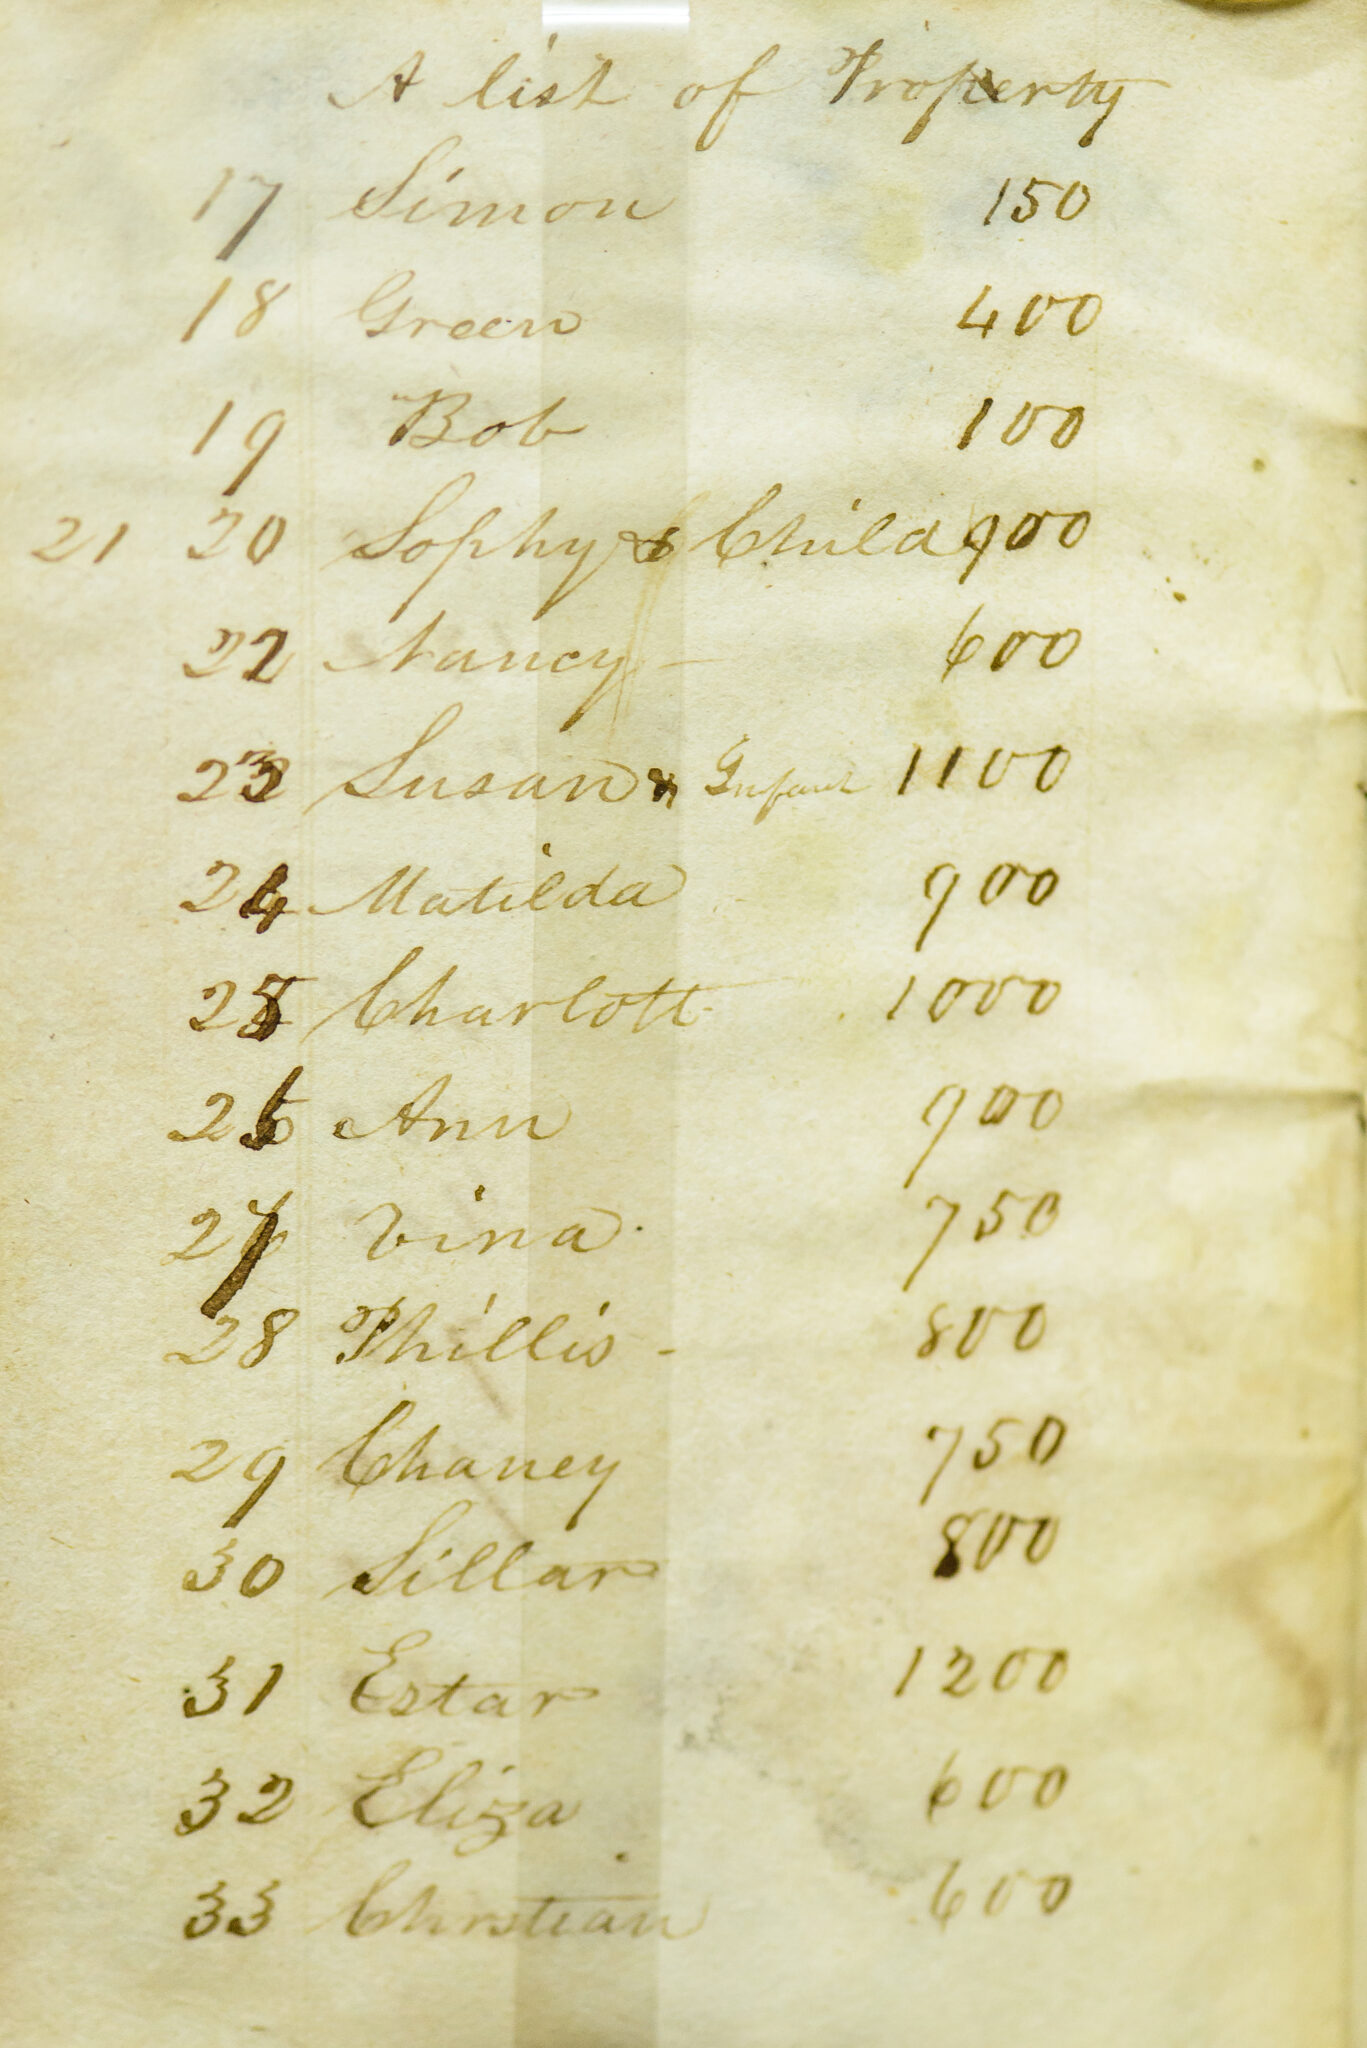 A list of Property
17 Simon 150
18 Green 400
19 Bob 100
21 20 Sophy & Child 900
22 Nancy - 600
23 Susan & Infant 1100
24 Matilda 900
25 Charlott 1000
26 Ann 900
27 Vina. 750
28 Phillis - 800
29 Chaney 750
30 Sillar 800
31 Estar 1200
32 Eliza 600
33 Christian 600